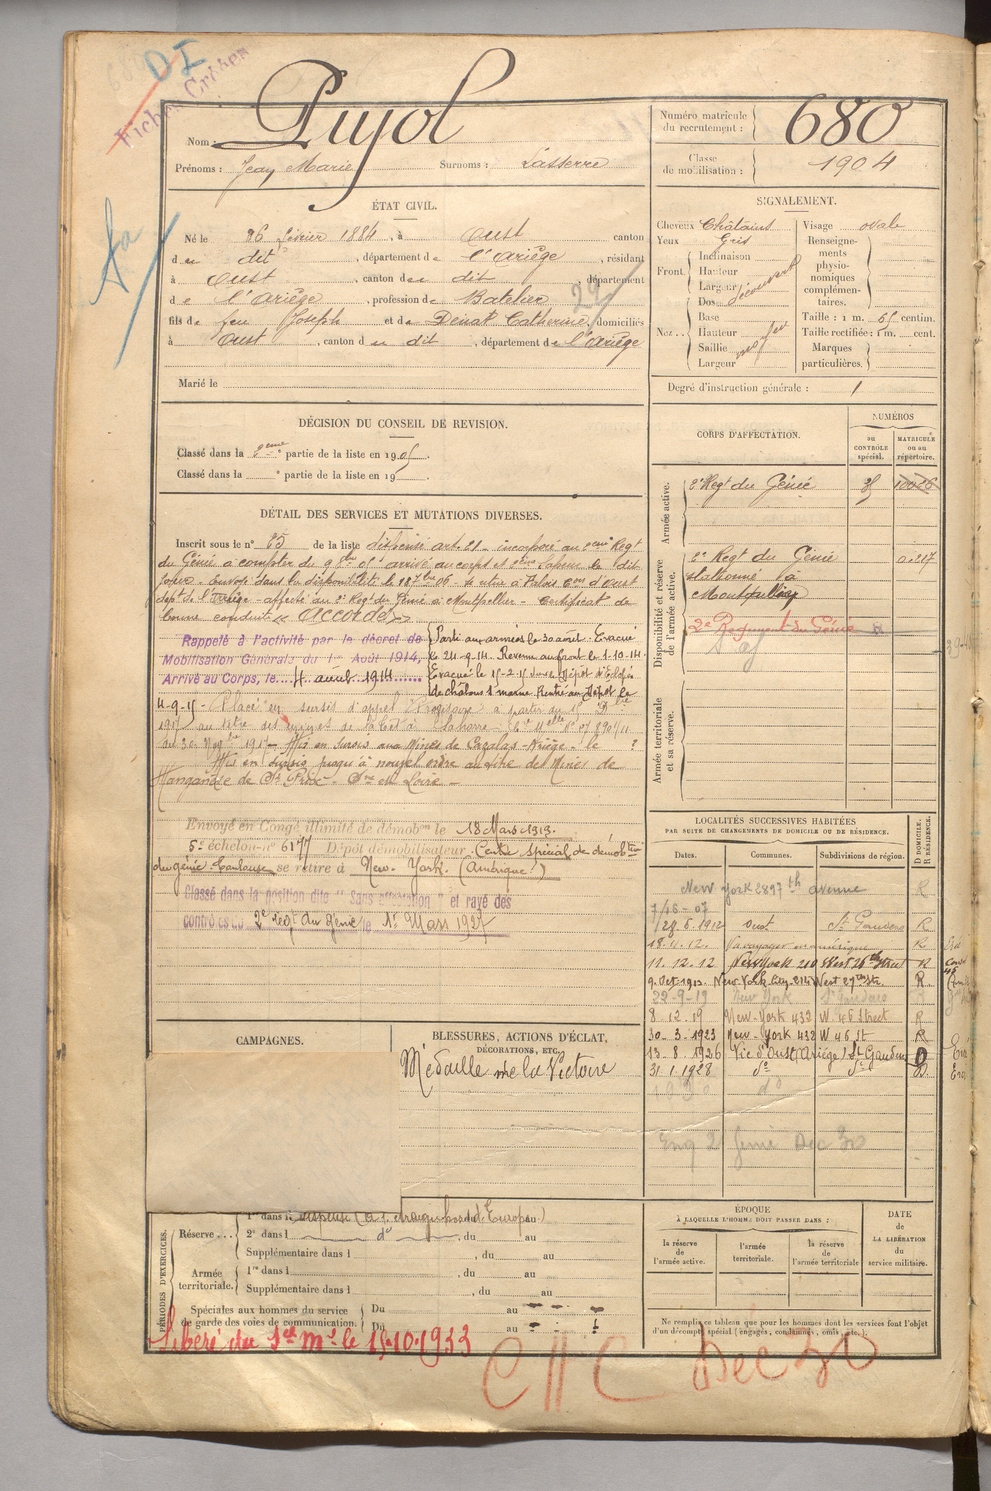 DI
Fiches Croisées
Nom : Pujol
Prénoms : Jean Marie Surnoms : Lasserre
Numéro matricule du recrutement : 680
Classe de mobilisation : 1904
ÉTAT CIVIL.
Né le 26 février 1884, à Oust canton
d u dit, département de l'Ariège, résidant
à Oust, canton du dit, département
de l'Ariège, profession de Batelier
fils de feu Joseph et de Dénat Catherine, domiciliés
à Oust, canton du dit, département de l'Ariège
Marié le
SIGNALEMENT.
Cheveux Châtains
Yeux Gris
Front Inclinaison
Hauteur
Largeur
découvert
Nez Dos
Base
Hauteur
Saillie
Largeur
moyen
Visage ovale
Renseignements physionomiques complémentaires.
Taille : 1 m. 65 centim.
Taille rectifiée : 1 m. cent.
Marques particulières.
Degré d'instruction générale :
DÉCISION DU CONSEIL DE REVISION.
Classé dans la 2ème partie de la liste en 1905.
Classé dans la partie de la liste en 19
CORPS D'AFFECTATION.
NUMÉROS
au CONTRÔLE spécial.
MATRICULE ou au répertoire.
Armée active.
2e Regt du Génie
Disponibilité et réserve de l'armée active.
2e Regt du Génie
stationné à
Montpellier
2e Régiment du Génie
Armée territoriale et sa réserve.
DÉTAIL DES SERVICES ET MUTATIONS DIVERSES.
Inscrit sous le n° 25 de la liste dispensé art. 21. incorporé au 2ème Regt
du Génie à compter du 9 8bre 05 arrivé au corps et 2ème Sapeur le dit
jour. Envoyé dans la disponibilité le 18 7bre 06. Se retire à
dept de l'Ariège. affecté au 2e Regt du Génie à Montpellier. Certificat de
bonne conduite « Accordé »
Rappelé à l'activité par le décret de
Mobilisation Générale du 1er Août 1914,
Arrivé au Corps, le 4 août 1914
Parti aux armées le 30 août. Evacué
le 24-9-14. Revenu au front le 1-10-14.
Evacué le 15-2-15 sur le Dépôt d'Eclopés
de châlons s/ marne. Rentré au Dépôt le
4-9-15. Placé en sursis d'appel
Mis en sursis aux Mines de
Mis en sursis jusqu'à nouvel ordre au titre des Mines de
Manganèse de St Prix. Sne et Loire
Envoyé en Congé illimité de démobon le 18 Mars 1919.
5e échelon n° 6177 Dépôt démobilisateur Centre Spécial de démobon
du génie Toulouse se retire à New-York. (Amérique)
Classé dans la position dite "Sans affectation" et rayé des
contrôles du 2e regt du Génie le 1er Mars 1927
LOCALITÉS SUCCESSIVES HABITÉES
PAR SUITE DE CHANGEMENTS DE DOMICILE OU DE RÉSIDENCE.
Dates. Communes. Subdivisions de région. D DOMICILE. R RÉSIDENCE.
New York 289 7th avenue R
28.6.1912 Oust St Gaudens R
18.11.12. Va voyager en amérique R
11.12.12 New York 210 West 26th Street R
9. Oct 1913. New York City 214 West 27th Str. R
22-9-19 New York St Gaudens R
8.12.19 New-York 432 W. 46 Street R
30.3.1923 New-York 432 W 46 St R
13.8.1926 Vic d'Oust (Ariège) St Gaudens D
31.1.1928 do do D.
do
CAMPAGNES.
BLESSURES, ACTIONS D'ÉCLAT,
DÉCORATIONS, ETC.
Médaille de la Victoire
PÉRIODES D'EXERCICES.
Réserve
1re dans l
2e dans l do, du au
Supplémentaire dans l, du au
Armée territoriale.
1re dans l, du au
Supplémentaire dans l, du au
Spéciales aux hommes du service de garde des voies de communication.
Du au
Du au
ÉPOQUE
À LAQUELLE L'HOMME DOIT PASSER DANS :
la réserve de l'armée active.
l'armée territoriale.
la réserve de l'armée territoriale
DATE de LA LIBÉRATION du service militaire.
Ne remplir ce tableau que pour les hommes dont les services font l'objet
d'un décompte spécial (engagés, condamnés, omis, etc.).
Libéré du Sce Mre le 15-10-1933
Dec 30